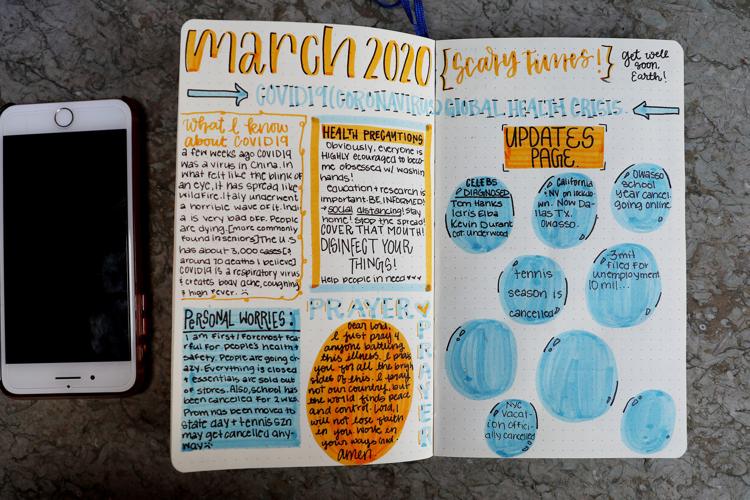 march 2020
{Scary times!}
get well
soon,
Earth!
COVID19 (CORONAVIRUS) GLOBAL HEALTH CRISIS.
what I know
about COVID19
a few weeks ago COVID19
was a virus in China. In
what felt like the blink of
an eye, it has spread like
wildfire. Italy underwent
a horrible wave of it. Indi
a is very bad off. People
are dying. [more commonly
found in seniors] The U.S
has about 3,000 cases [&
around 70 deaths I believe]
COVID19 is a respiratory virus
& creates body ache, coughing
& high fever.
HEALTH PRECAUTIONS
Obviously, everyone is
HIGHLY ecouraged to becom
me obsessed w/ washin
hands!
education + research is
important. BE INFORMED!
→ social distancing! stay
home! stop the spread!
COVER THAT MOUTH!
DISINFECT YOUR
THINGS!
Help people in need ♥♥♥
PERSONAL WORRIES:
I am first & foremost fear
ful for people's health &
safety. People are going cr-
azy. Everything is closed
+ essentials are sold out
of stores. Also, school has
been cancelled for 2 wks.
Prom has been moved to
state day + tennis szn
may get cancelled any-
way
PRAYER
PRAYER
Dear Lord,
I just pray 4
anyone battling
this illness. I
you for all the brigh
sides of this. I pray
not our country, but
the world finds peace
and control. Lord, I
will not lose faith
in you. Work in
your ways God.
amen.
UPDATES
PAGE.
CELEBS
DIAGNOSED
Tom Hanks
Idris Elba
Kevin Durant
Car. underwood
California
+ NY on lockdo
wn. Now Da-
llas TX.
Owasso.
Owasso
school
year cancel.
going online.
tennis
season is
cancelled
3 mil
filed for
unemployment
10 mil...
NYC
vacat-
ion offici-
ally cancelled